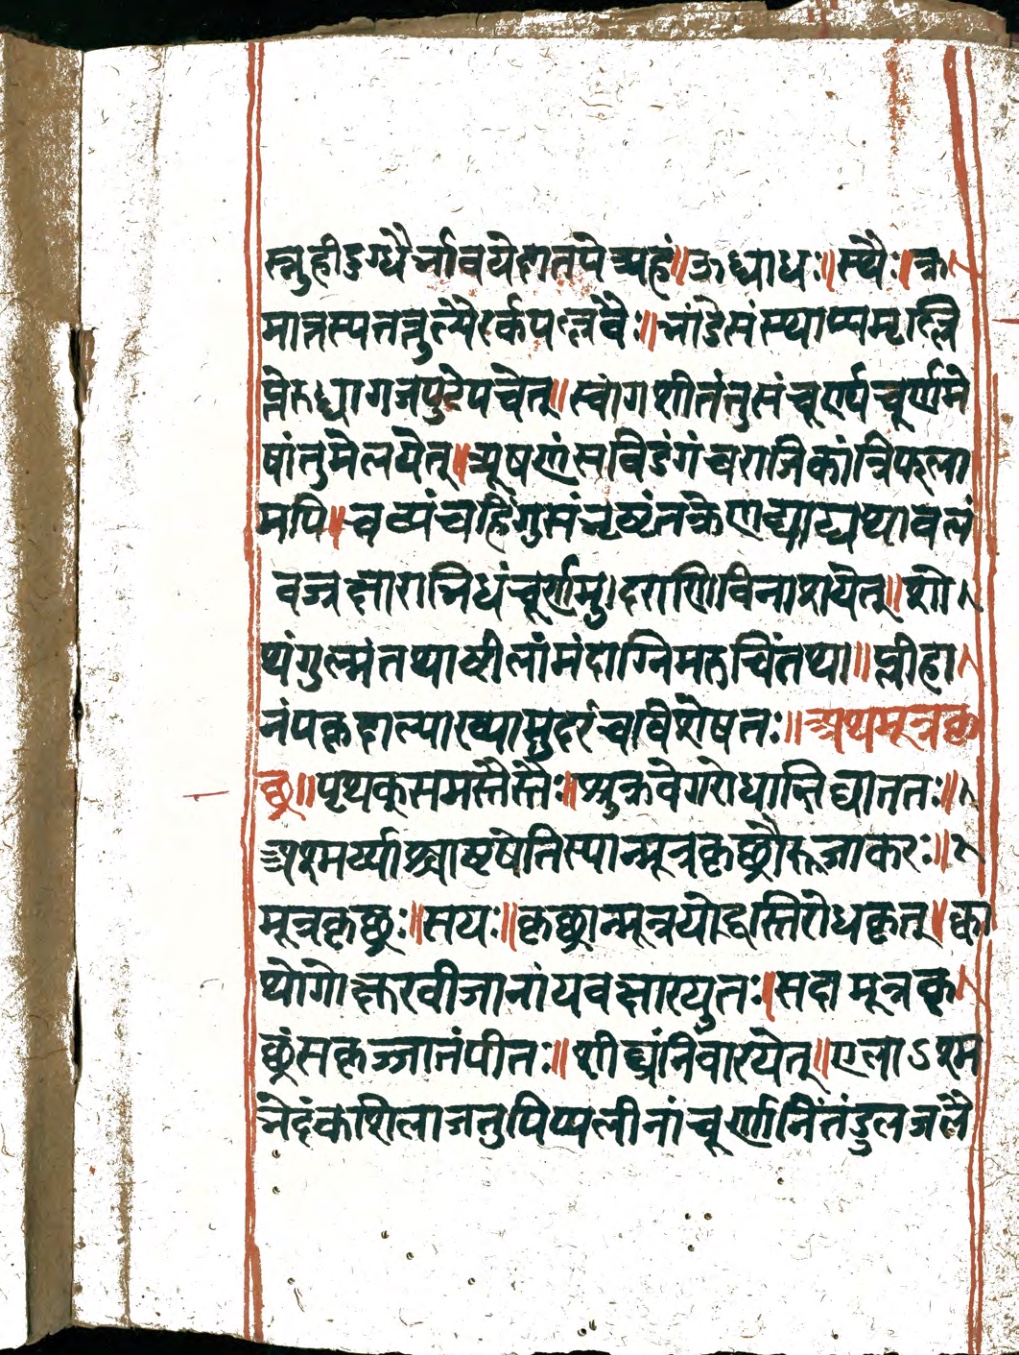 स्नुहीडुग्धैर्भावयेदातपेत्र्यहं॥ऊर्द्ध्वाधः॥स्थैः॥क्र
मात्तस्पतत्तुल्यैरर्कपल्लवैः॥भांडेसंस्थाप्पमृल्लि
प्तेरुध्द्यागजपुटेपचेत्॥स्वांगशीतंतुसंचूर्ण्यचूर्णमे
षांतुमेलयेत्॥त्र्यूषणंसविडंगंचराजिकांत्रिफला
मपि॥चव्यंचहिंगुसंभृष्टंतक्रेणाद्याद्यथावलं
वज्रक्षाराभिधंचूर्णमु।दराणि।विनाशयेत्॥शो
थंगुल्मंतथाष्ठीलांमंदाग्निमरुचिंतथा॥प्लीहा
नंपकृद्दाल्पाख्यामुदरंचविशेषतः॥अथमूत्रकृ
छ्र॥पृथक्समस्तैस्तैः॥शुक्रवेगरोधाभिघाततः॥
अश्मर्य्याश्चाष्टषेतिस्पान्मूत्रकृछ्रौरुजाकरः॥२
मूत्रकृछ्रः॥सयः॥कृछ्रान्मूत्रयेद्वस्तिरोधकृत्॥क्वा
थोगोक्षरवीजानांयवक्षारयुतः॥सदामूत्रकृ
छ्रंसकृज्जातंपीतः॥शीघ्रंनिवारयेत्॥एलाऽश्म
भेदंकशिलाजतुपिप्पलीनांचूर्णानितंडुलजलै